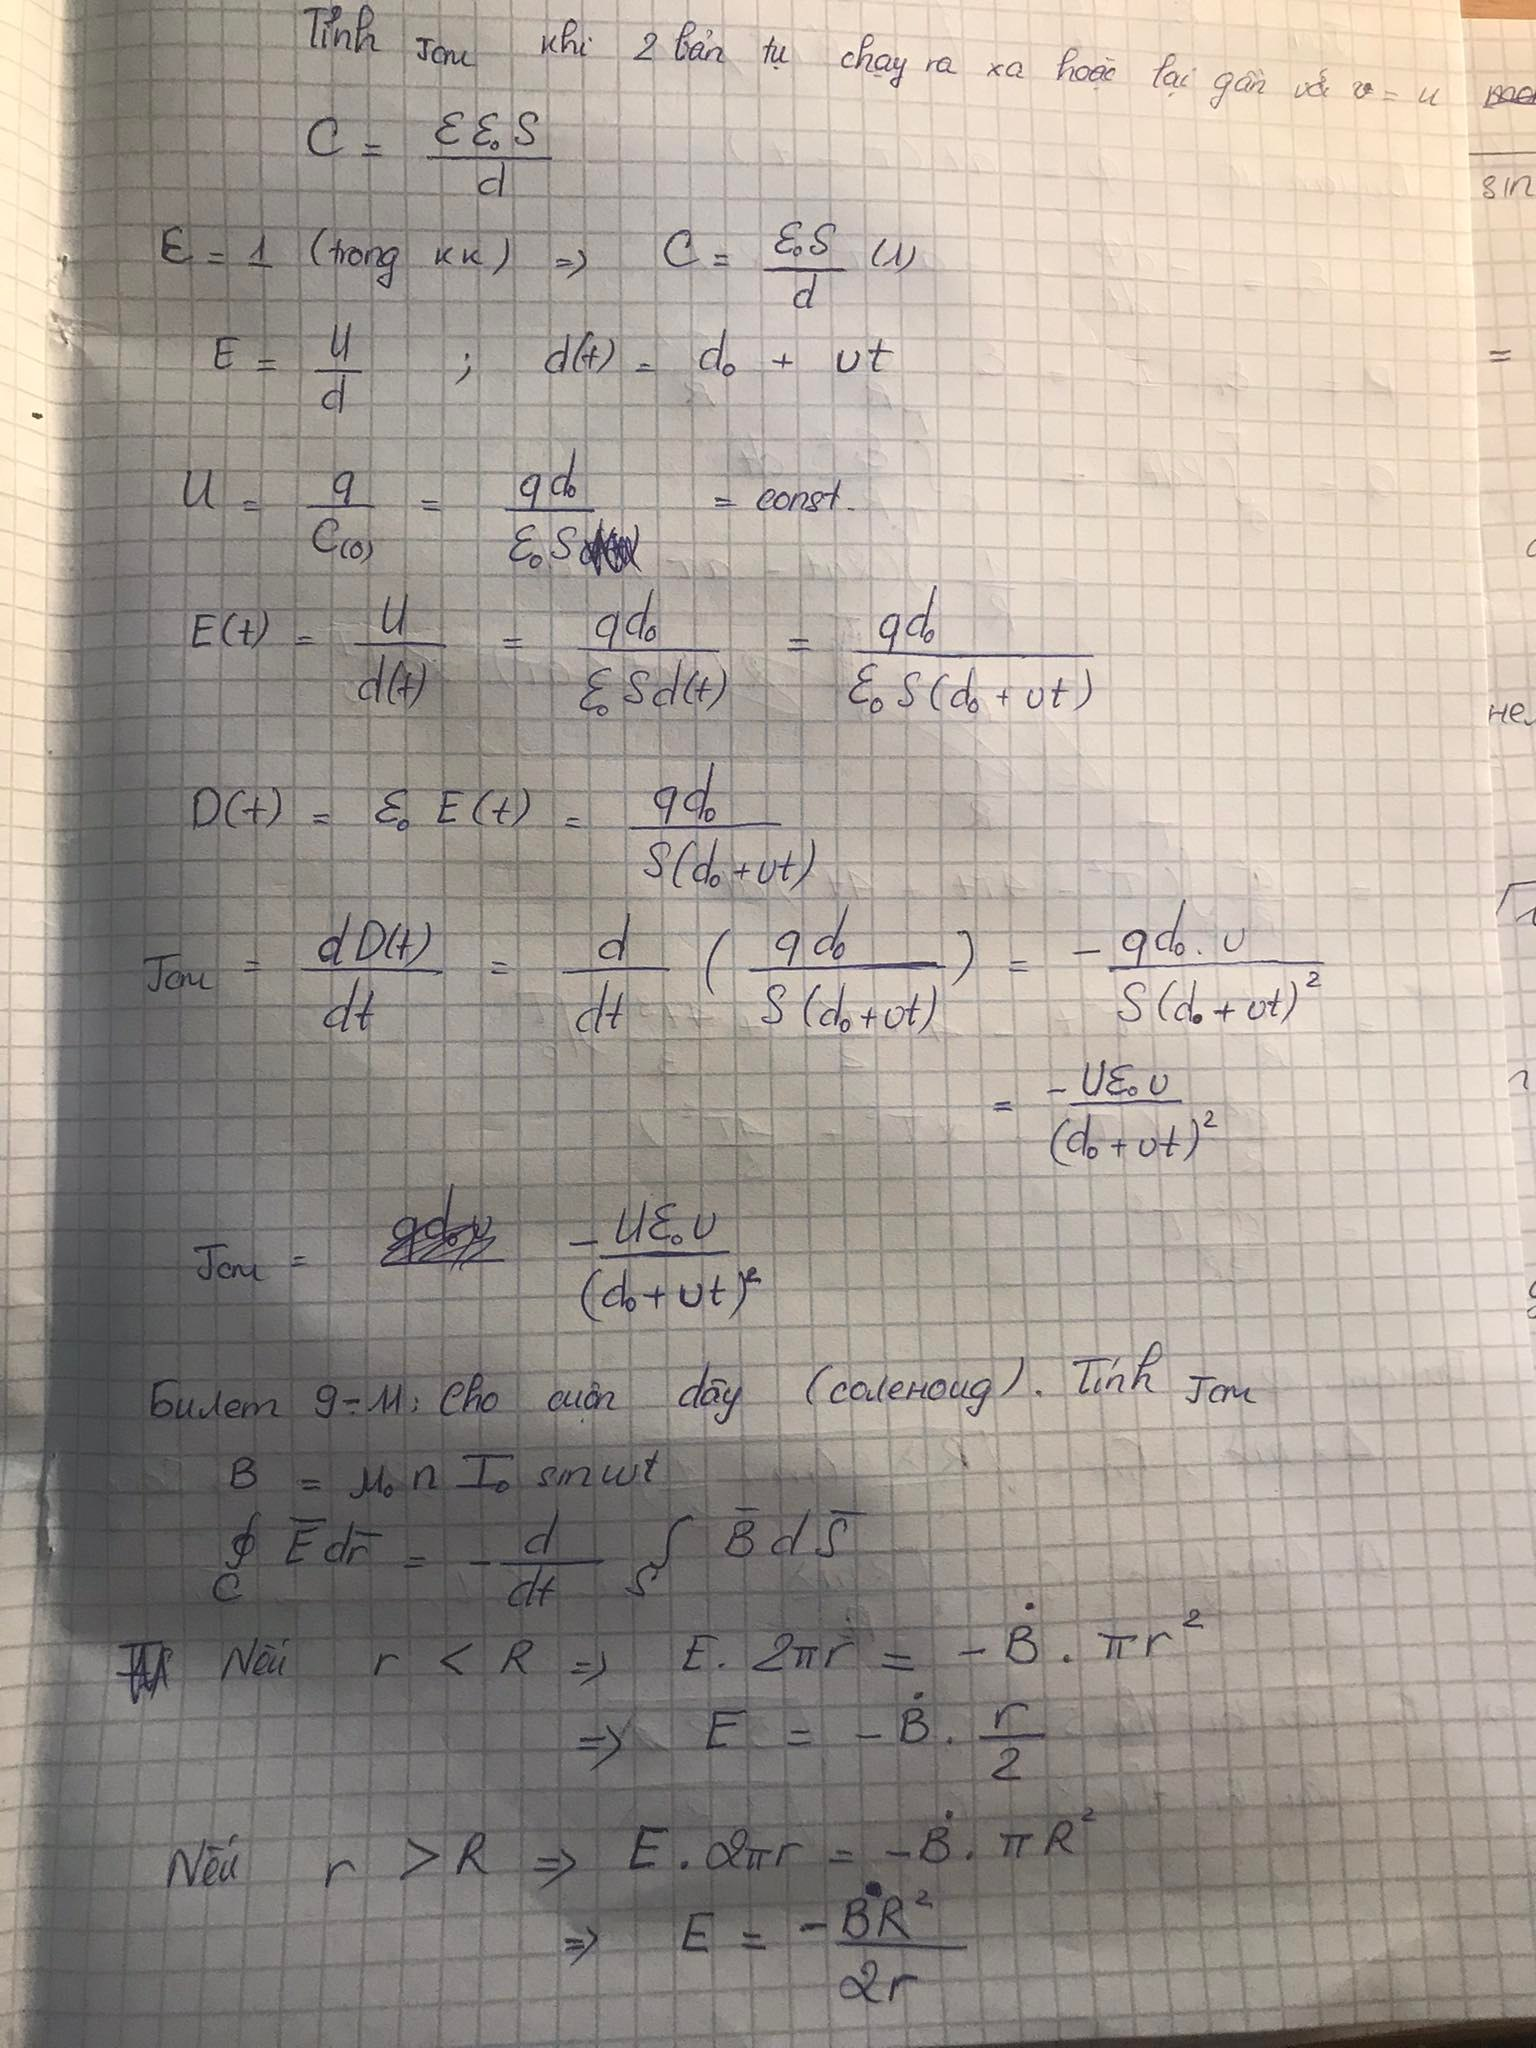 Tính Jcm khi 2 bản tụ chạy ra xa hoặc lại gần với v = u
C = εε₀S / d
ε = 1 (trong kk) => C = ε₀S / d (1)
E = U / d ; d(t) = d₀ + vt
U = q / C(0) = qd₀ / ε₀S = const.
E(t) = U / d(t) = qd₀ / ε₀Sd(t) = qd₀ / ε₀S(d₀ + vt)
D(t) = ε₀ E(t) = qd₀ / S(d₀ + vt)
Jcm = dD(t) / dt = d / dt ( qd₀ / S(d₀ + vt) ) = - qd₀ . v / S(d₀ + vt)²
= -Uε₀v / (d₀ + vt)²
Jcm = -Uε₀v / (d₀ + vt)²
Билет 9-11: Cho cuộn dây (соленоид). Tính Jcm
B = μ₀ n I₀ sin wt
∮_C E̅ dr̅ = - d / dt ∫_S B̅ dS̅
Nếu r < R => E. 2πr = - Ḃ . πr²
=> E = - Ḃ . r / 2
Nếu r > R => E . 2πr = - Ḃ . πR²
=> E = - ḂR² / 2r
sin
=